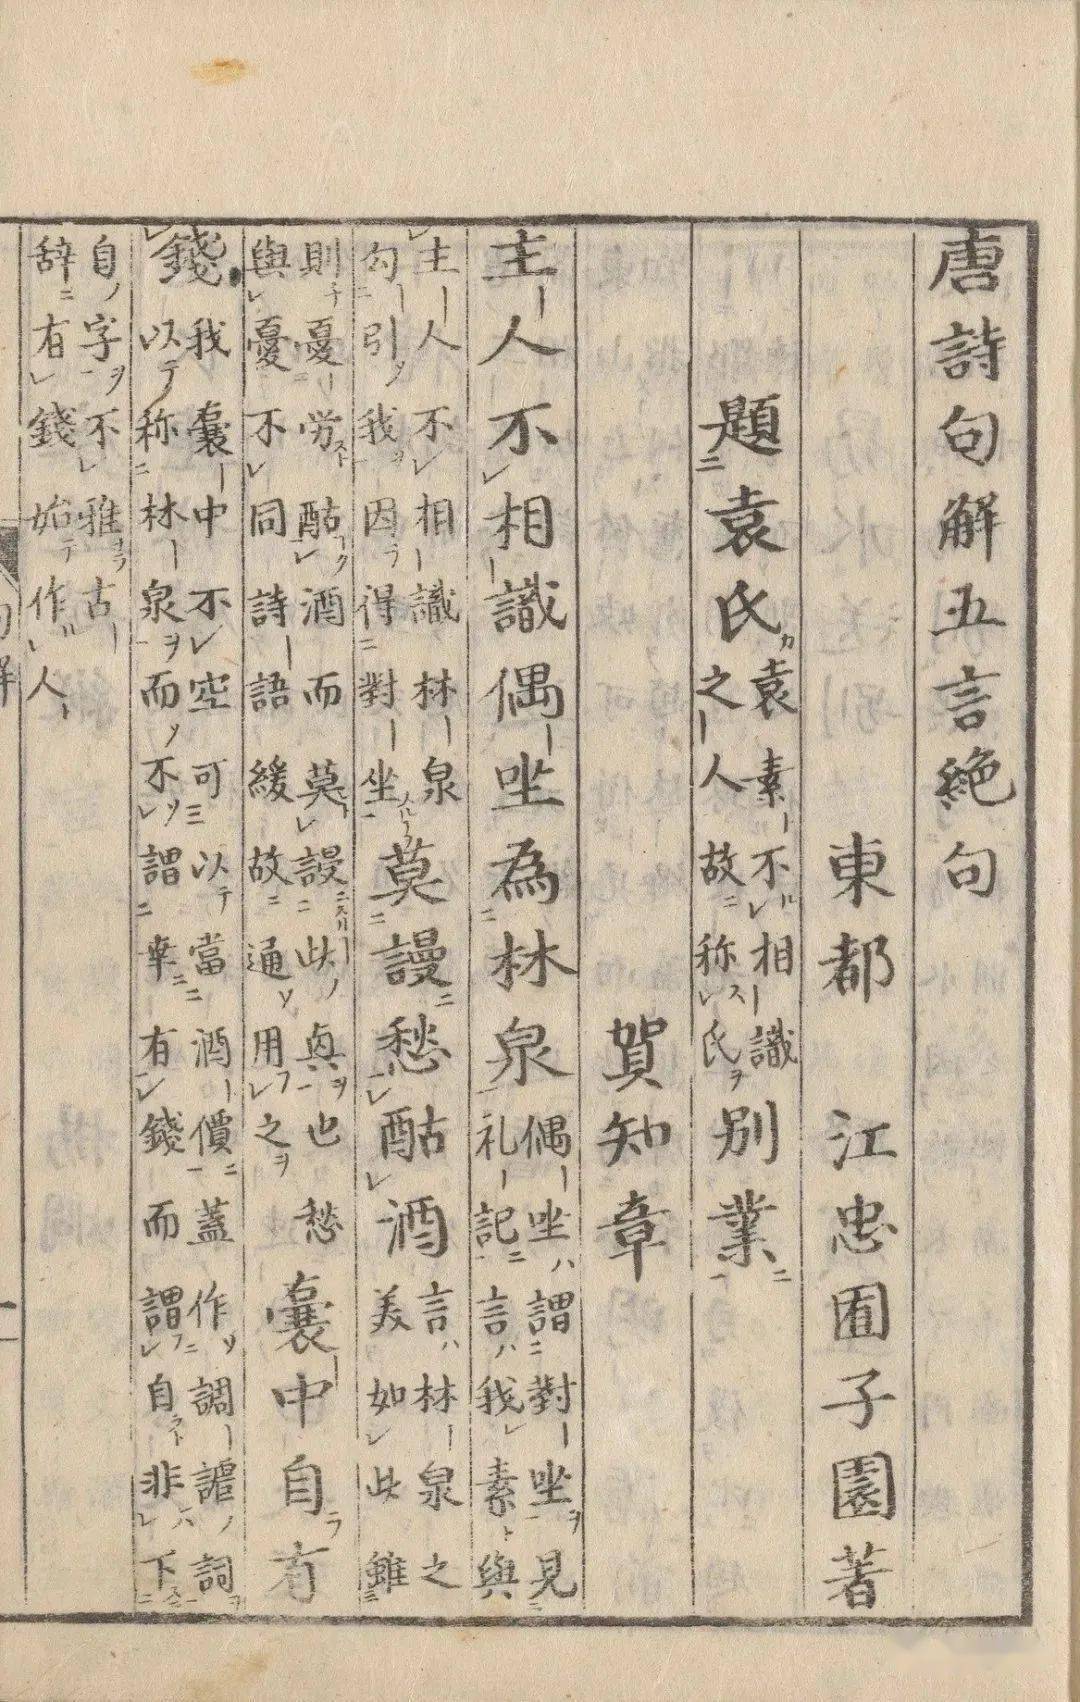 唐詩句解五言絶句
東都 江忠囿子園著
題袁氏袁素不相識之人故称氏別業
賀知章
主人不相識偶坐為林泉偶坐謂對坐見礼記言我素與
主人不相識林泉勾引我因得對坐莫謾愁酤酒言林泉之美如此雖
則憂労酤酒而莫謾此真也愁與憂不同詩語緩故通用之囊中自有
錢我囊中不空可以當酒價蓋作調謔詞以称林泉而不謂幸有錢而謂自非下
自字不雅古辞有錢始作人